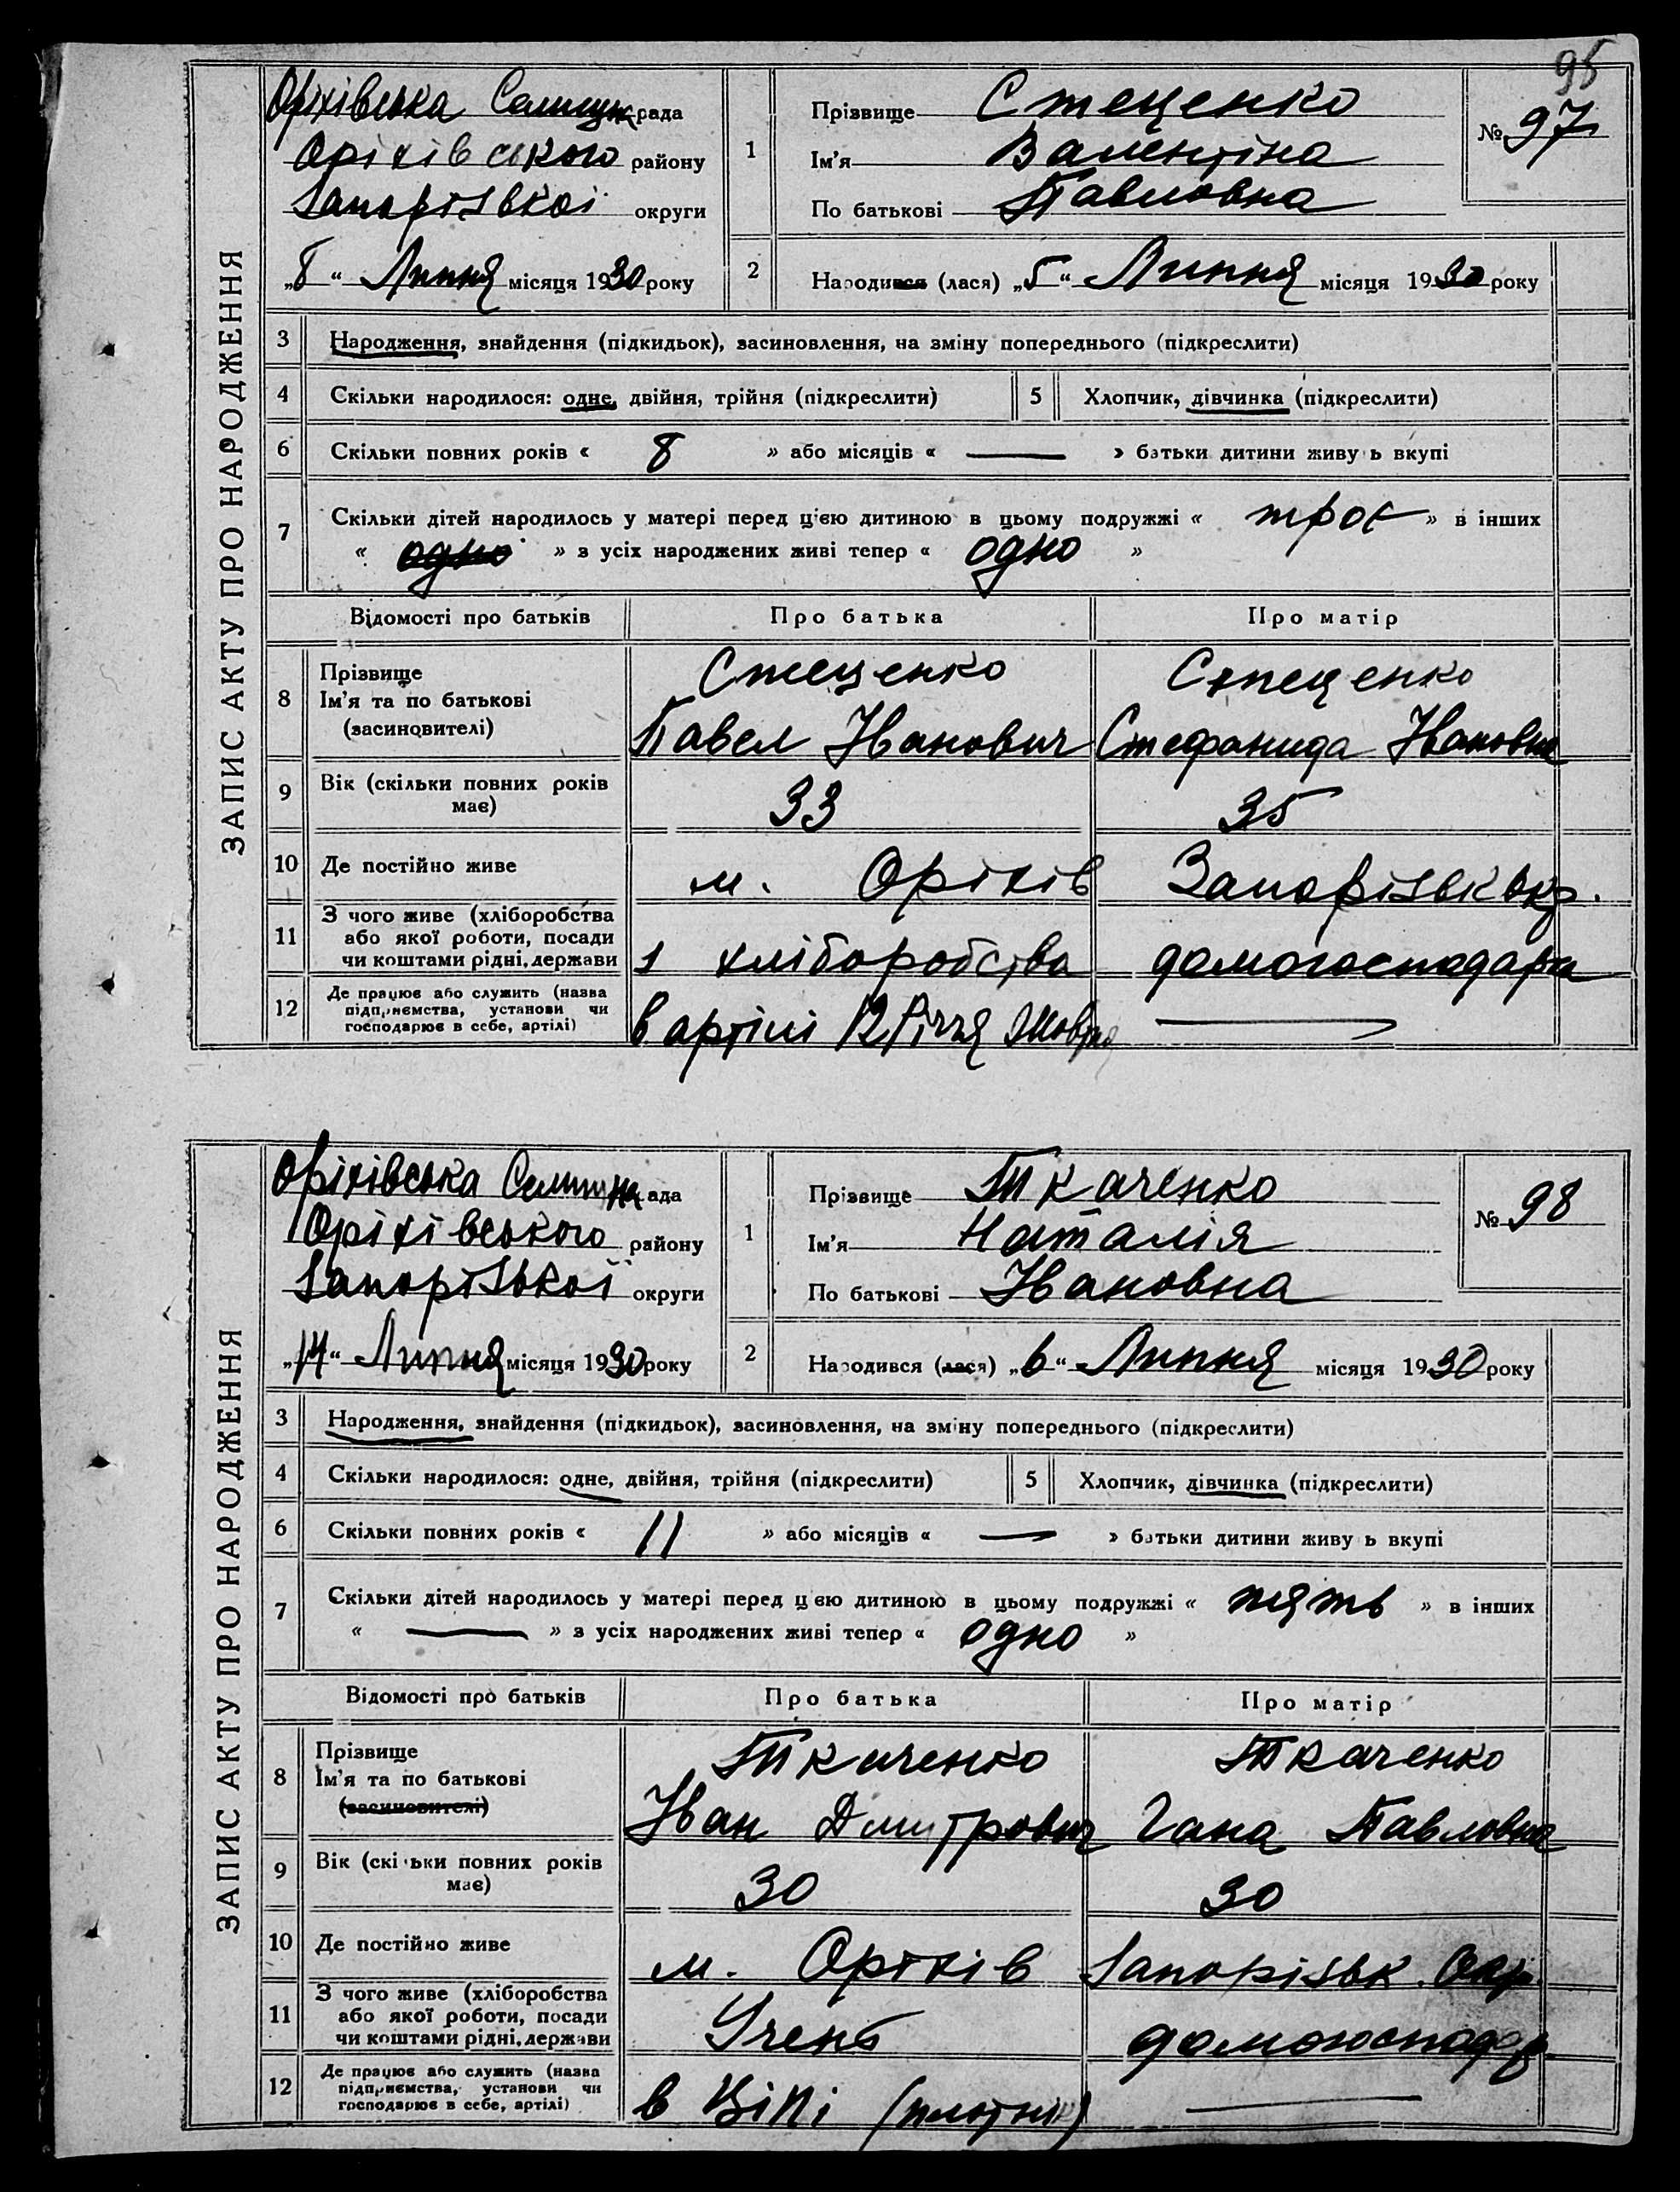 95
ЗАПИС АКТУ ПРО НАРОДЖЕННЯ
Оріхівська Селищн рада
Оріхівського району
Запорізької округи
„8“ Липня місяця 1930 року
1
Прізвище Стеценко
Ім'я Валентіна
По батькові Павловна
№ 97
2
Народився (лася) „5“ Липня місяця 1930 року
3 Народження, знайдення (підкидьок), засиновлення, на зміну попереднього (підкреслити)
4 Скільки народилося: одне, двійня, трійня (підкреслити) 5 Хлопчик, дівчинка (підкреслити)
6 Скільки повних років « 8 » або місяців « — » батьки дитини живу ь вкупі
7 Скільки дітей народилось у матері перед цією дитиною в цьому подружжі « троє » в інших
« одно » з усіх народжених живі тепер « одно »
Відомості про батьків Про батька Про матір
8 Прізвище Стеценко Стеценко
Ім'я та по батькові Павел Іванович Стефанида Івановна
(засиновителі)
9 Вік (скільки повних років має) 33 35
10 Де постійно живе м. Оріхів Запорізьк окр.
11 З чого живе (хліборобства
або якої роботи, посади
чи коштами рідні, держави з хліборобства домогосподарка
12 Де працює або служить (назва
підприємства, установи чи
господарює в себе, артілі) в артілі 12 Річчя Жовтня —
ЗАПИС АКТУ ПРО НАРОДЖЕННЯ
Оріхівська Селищна ада
Оріхівського району
Запорізької округи
„14“ Липня місяця 1930 року
1
Прізвище Ткаченко
Ім'я Наталія
По батькові Івановна
№ 98
2
Народився (лася) „6“ Липня місяця 1930 року
3 Народження, знайдення (підкидьок), засиновлення, на зміну попереднього (підкреслити)
4 Скільки народилося: одне, двійня, трійня (підкреслити) 5 Хлопчик, дівчинка (підкреслити)
6 Скільки повних років « 11 » або місяців « — » батьки дитини живу ь вкупі
7 Скільки дітей народилось у матері перед цією дитиною в цьому подружжі « пять » в інших
« — » з усіх народжених живі тепер « одно »
Відомості про батьків Про батька Про матір
8 Прізвище Ткаченко Ткаченко
Ім'я та по батькові Іван Дмитрович Гана Павловна
(засиновителі)
9 Вік (скільки повних років має) 30 30
10 Де постійно живе м. Оріхів Запорізьк. Окр.
11 З чого живе (хліборобства
або якої роботи, посади
чи коштами рідні, держави Учень домогосподар.
12 Де працює або служить (назва
підприємства, установи чи
господарює в себе, артілі) в —